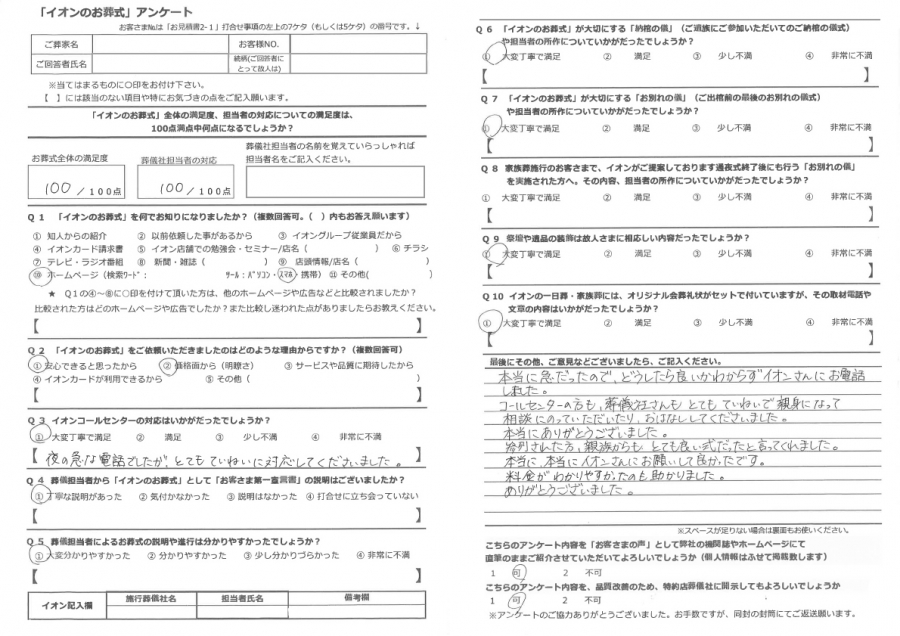 「イオンのお葬式」アンケート
お客さま№は「お見積書2-1」打合せ事項の左上の7ケタ（もしくは5ケタ）の番号です。↓
ご葬家名 お客様NO.
ご回答者氏名 続柄(ご回答者にとって故人は)
※当てはまるものに〇印をお付け下さい。
【 】には該当のない項目や特にお気づきの点をご記入願います。
「イオンのお葬式」全体の満足度、担当者の対応についての満足度は、
100点満点中何点になるでしょうか？
お葬式全体の満足度 葬儀社担当者の対応 葬儀社担当者の名前を覚えていらっしゃれば
担当者名をご記入ください。
100 / 100点 100 / 100点
Q 1 「イオンのお葬式」を何でお知りになりましたか？（複数回答可。( ）内もお答え願います）
① 知人からの紹介 ② 以前依頼した事があるから ③ イオングループ従業員だから
④ イオンカード請求書 ⑤ イオン店舗での勉強会・セミナー/店名（ ） ⑥ チラシ
⑦ テレビ・ラジオ番組 ⑧ 新聞・雑誌（ ） ⑨ 店頭情報/店名（ ）
⑩ ホームページ（検索ﾜｰﾄﾞ： ﾂｰﾙ：ﾊﾟｿｺﾝ・ｽﾏﾎ・携帯） ⑪ その他( )
★ Q1の④～⑧に〇印を付けて頂いた方は、他のホームページや広告などと比較されましたか？
比較された方はどのホームページや広告でしたか？また比較し迷われた点がありましたらお教えください。
【 】
Q 2 「イオンのお葬式」をご依頼いただきましたのはどのような理由からですか？（複数回答可）
① 安心できると思ったから ② 価格面から（明瞭さ） ③ サービスや品質に期待したから
④ イオンカードが利用できるから ⑤ その他（ ）
【 】
Q 3 イオンコールセンターの対応はいかがだったでしょうか？
① 大変丁寧で満足 ② 満足 ③ 少し不満 ④ 非常に不満
【 夜の急な電話でしたが、とてもていねいに対応してくださいました。 】
Q 4 葬儀担当者から「イオンのお葬式」として「お客さま第一宣言書」の説明はございましたか？
① 丁寧な説明があった ② 気付かなかった ③ 説明はなかった ④ 打合せに立ち会っていない
【 】
Q 5 葬儀担当者によるお葬式の説明や進行は分かりやすかったでしょうか？
① 大変分かりやすかった ② 分かりやすかった ③ 少し分かりづらかった ④ 非常に不満
【 】
イオン記入欄 施行葬儀社名 担当者氏名 備考欄
Q 6 「イオンのお葬式」が大切にする「納棺の儀」（ご遺族にご参加いただいてのご納棺の儀式）
や担当者の所作についていかがだったでしょうか？
① 大変丁寧で満足 ② 満足 ③ 少し不満 ④ 非常に不満
【 】
Q 7 「イオンのお葬式」が大切にする「お別れの儀」（ご出棺前の最後のお別れの儀式）
や担当者の所作についていかがだったでしょうか？
① 大変丁寧で満足 ② 満足 ③ 少し不満 ④ 非常に不満
【 】
Q 8 家族葬施行のお客さまで、イオンがご提案しております通夜式終了後にも行う「お別れの儀」
を実施された方へ。その内容、担当者の所作についていかがだったでしょうか？
① 大変丁寧で満足 ② 満足 ③ 少し不満 ④ 非常に不満
【 】
Q 9 祭壇や遺品の装飾は故人さまに相応しい内容だったでしょうか？
① 大変丁寧で満足 ② 満足 ③ 少し不満 ④ 非常に不満
【 】
Q 10 イオンの一日葬・家族葬には、オリジナル会葬礼状がセットで付いていますが、その取材電話や
文章の内容はいかがだったでしょうか？
① 大変丁寧で満足 ② 満足 ③ 少し不満 ④ 非常に不満
【 】
最後にその他、ご意見などございましたら、ご記入ください。
本当に急だったので、どうしたら良いかわからずイオンさんにお電話
しました。
コールセンターの方も、葬儀社さんも とてもていねいで親身になって
相談にのっていただいたり、おはなししてくださいました。
本当にありがとうございました。
参列された方、親族からも とても良い式だったと言ってくれました。
本当に、本当にイオンさんにお願いして良かったです。
料金がわかりやすかったのも助かりました。
ありがとうございました。
※スペースが足りない場合は裏面もお使いください。
こちらのアンケート内容を「お客さまの声」として弊社の機関誌やホームページにて
直筆のままご紹介させていただいてよろしいでしょうか（個人情報はふせて掲載致します）
1 可 2 不可
こちらのアンケート内容を、品質改善のため、特約店葬儀社に開示してもよろしいでしょうか
1 可 2 不可
※アンケートのご協力ありがとうございました。お手数ですが、同封の封筒にてご返送願います。